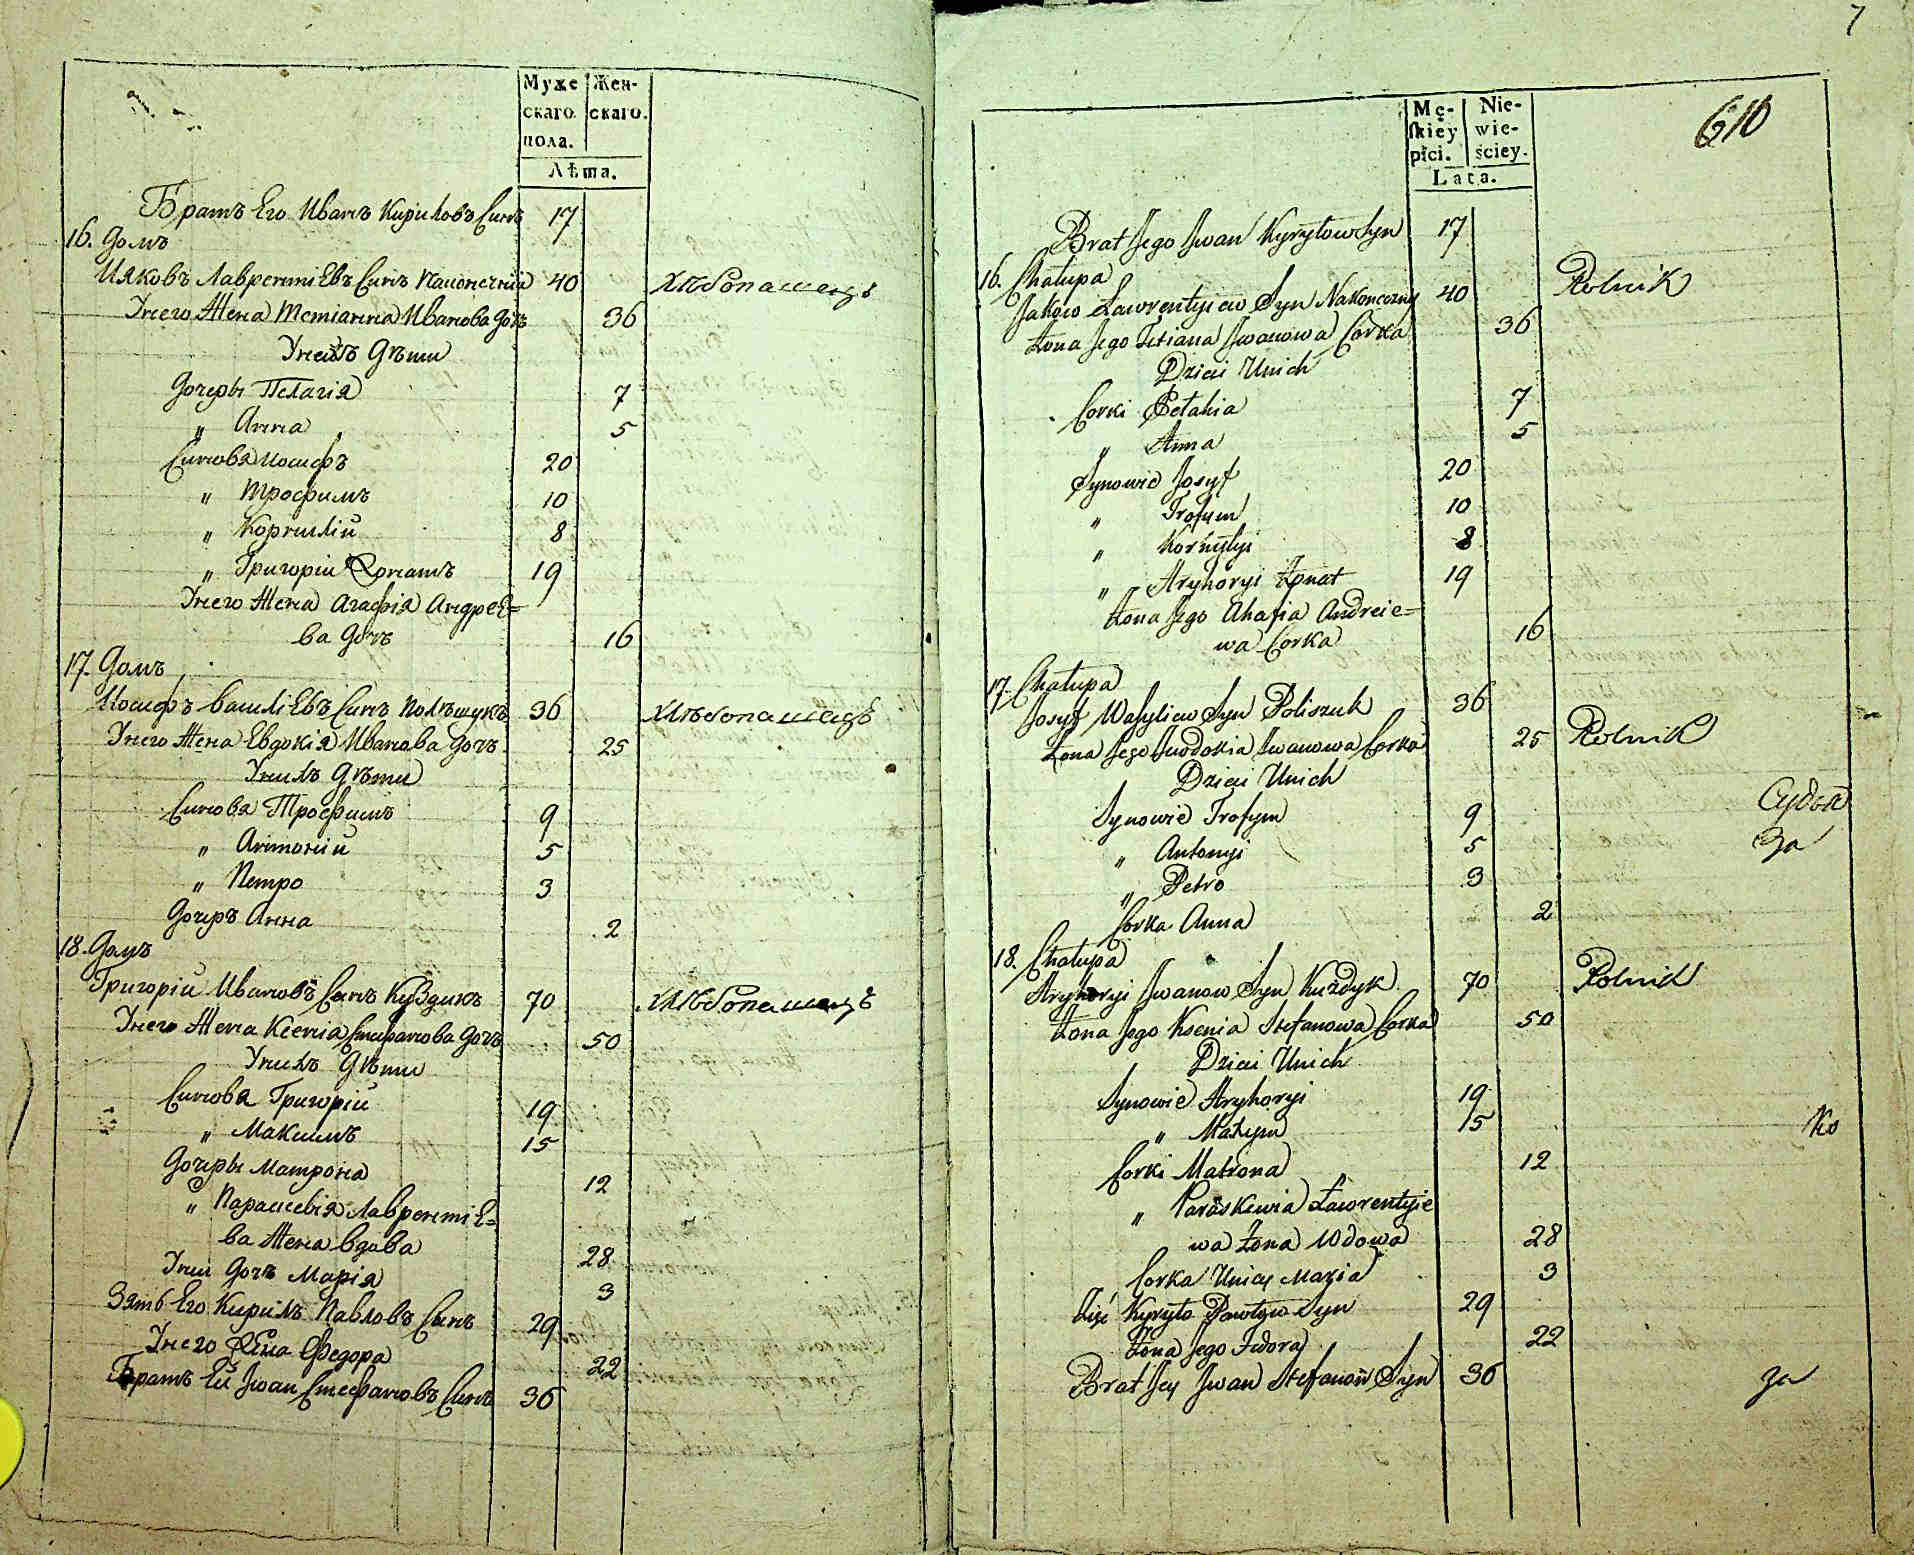 Муже
скаго
пола.
Жен-
скаго.
Лѣта.
Братъ Его Иванъ Кириловъ Синъ 17
16. Домъ
Ияковъ Лаврентіевъ Синъ Наконечній 40 Хлѣбопашецъ
Унего Жена Тетіанна Иванова Дочъ 36
Унихъ Дѣти
Дочеры Пелагія 7
„ Анна 5
Синовя Иосифъ 20
„ Трофимъ 10
„ Корнилій 8
„ Григорій 19
Унего Жена Агафія Андрее=
ва Дочъ 16
17. Домъ
Иосифъ Василіевъ Синъ Полѣщукъ 36 Хлѣбопашецъ
Унего Жена Евдокія Иванова Дочъ 25
Унихъ Дѣти
Синовя Трофимъ 9
„ Антоній 5
„ Петро 3
Дочеръ Анна 2
18. Домъ
Григорій Ивановъ Синъ Куздикъ 70 Хлѣбопашецъ
Унего Жена Ксенія Стифанова Дочъ 50
Унихъ Дѣти
Синовя Григорій 19
„ Максимъ 15
Дочеры Матрона 12
„ Параскевія Лаврентіе=
ва Жена вдова 28
Уни Дочъ Марія 3
Зять Его Кирилъ Павловъ Синъ 29
Унего Жена Федора 22
Братъ Ей Iwan Стефановъ Синъ 36
7
610
Mę-
ſkiey
płci.
Nie-
wie-
ściey.
Lata.
Brat Jego Jwan Kyryłow Syn 17
16. Chałupa
Jakow Ławrentyiew Syn Nakoneczny 40 Rolnik
Żona Jego Tetiana Jwanowa Corka 36
Dzieci Unich
Corki Pełahia 7
„ Anna 5
Synowie Josyf 20
„ Trofym 10
„ Kornyłyi 8
„ Hryhoryi 19
Żona Jego Ahafia Andreie=
wa Corka 16
17. Chałupa
Josyf Wasyliew Syn Poliszuk 36
Żona Jego Jewdokia Jwanowa Corka 25 Rolnik
Dzieci Unich
Synowie Trofym 9
„ Antonyi 5
„ Petro 3
Corka Anna 2
За
18. Chałupa
Hryhoryi Jwanow Syn Kuzdyk 70 Rolnik
Żona Jego Ksenia Stefanowa Corka 50
Dzieci Unich
Synowie Hryhoryi 19
„ Maxym 15
Corki Matrona 12
„ Paraskewia Ławrentyie
wa Żona Wdowa 28
Corka Unicy Maria 3
Zięć Kyryło Pawłow Syn 29
Żona Jego Fedora 22
Brat Jey Jwan Stefanow Syn 36
за